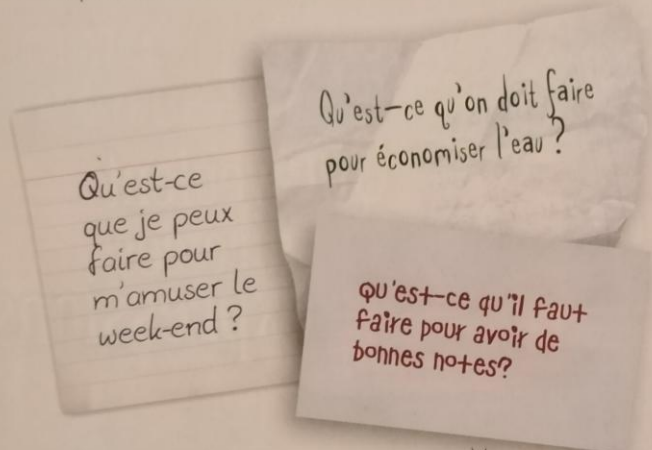 Qu'est-ce
que je peux
faire pour
m'amuser le
week-end ?
Qu'est-ce qu'on doit faire
pour économiser l'eau ?
Qu'est-ce qu'il faut
faire pour avoir de
bonnes notes?